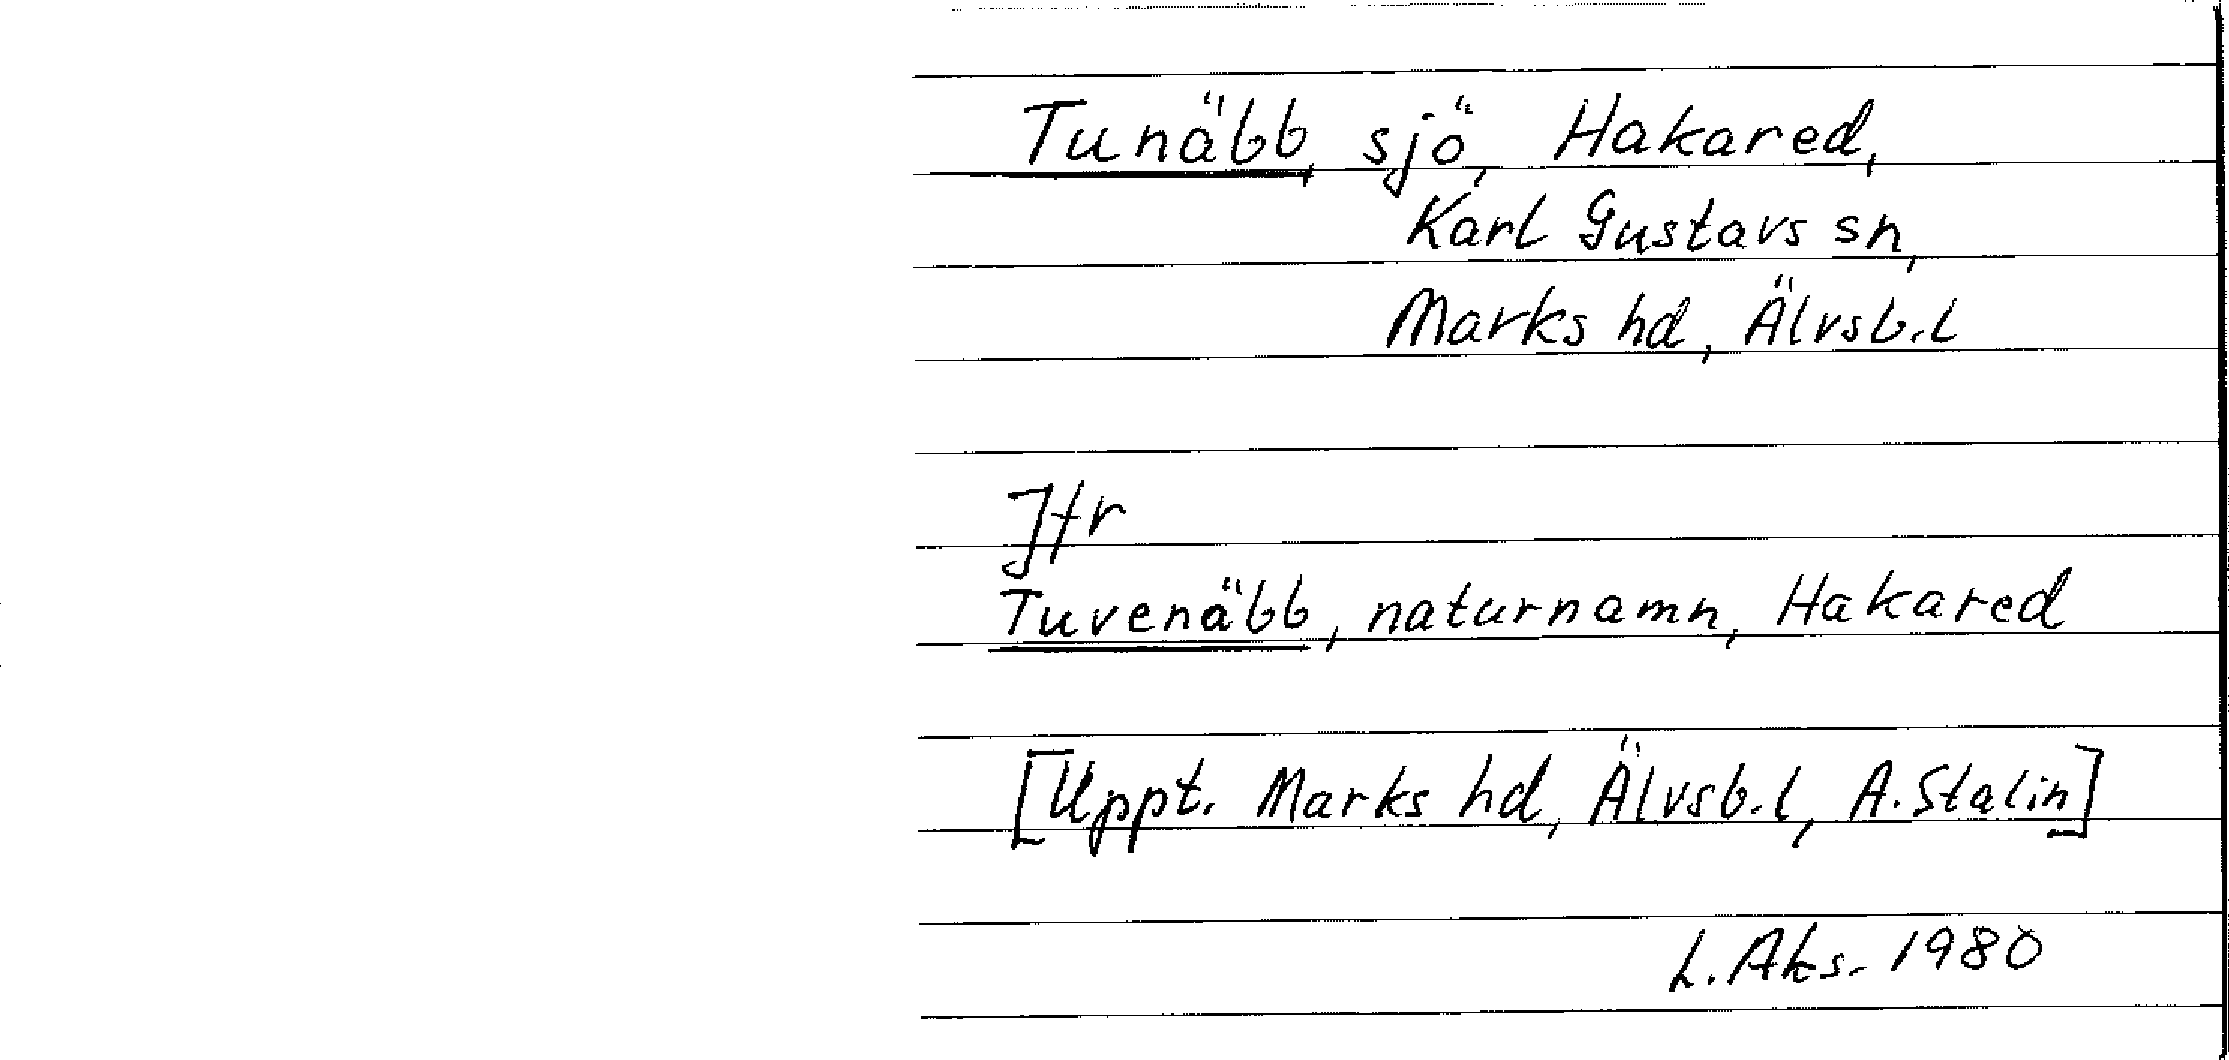 Tunäbb, sjö, Hakared,
Karl Gustavs sn,
Marks hd, Älvsb.l
Jfr
Tuvenäbb, naturnamn, Hakared
[Uppt. Marks hd, Älvsb.l, A. Stalin]
L. Aks. 1980